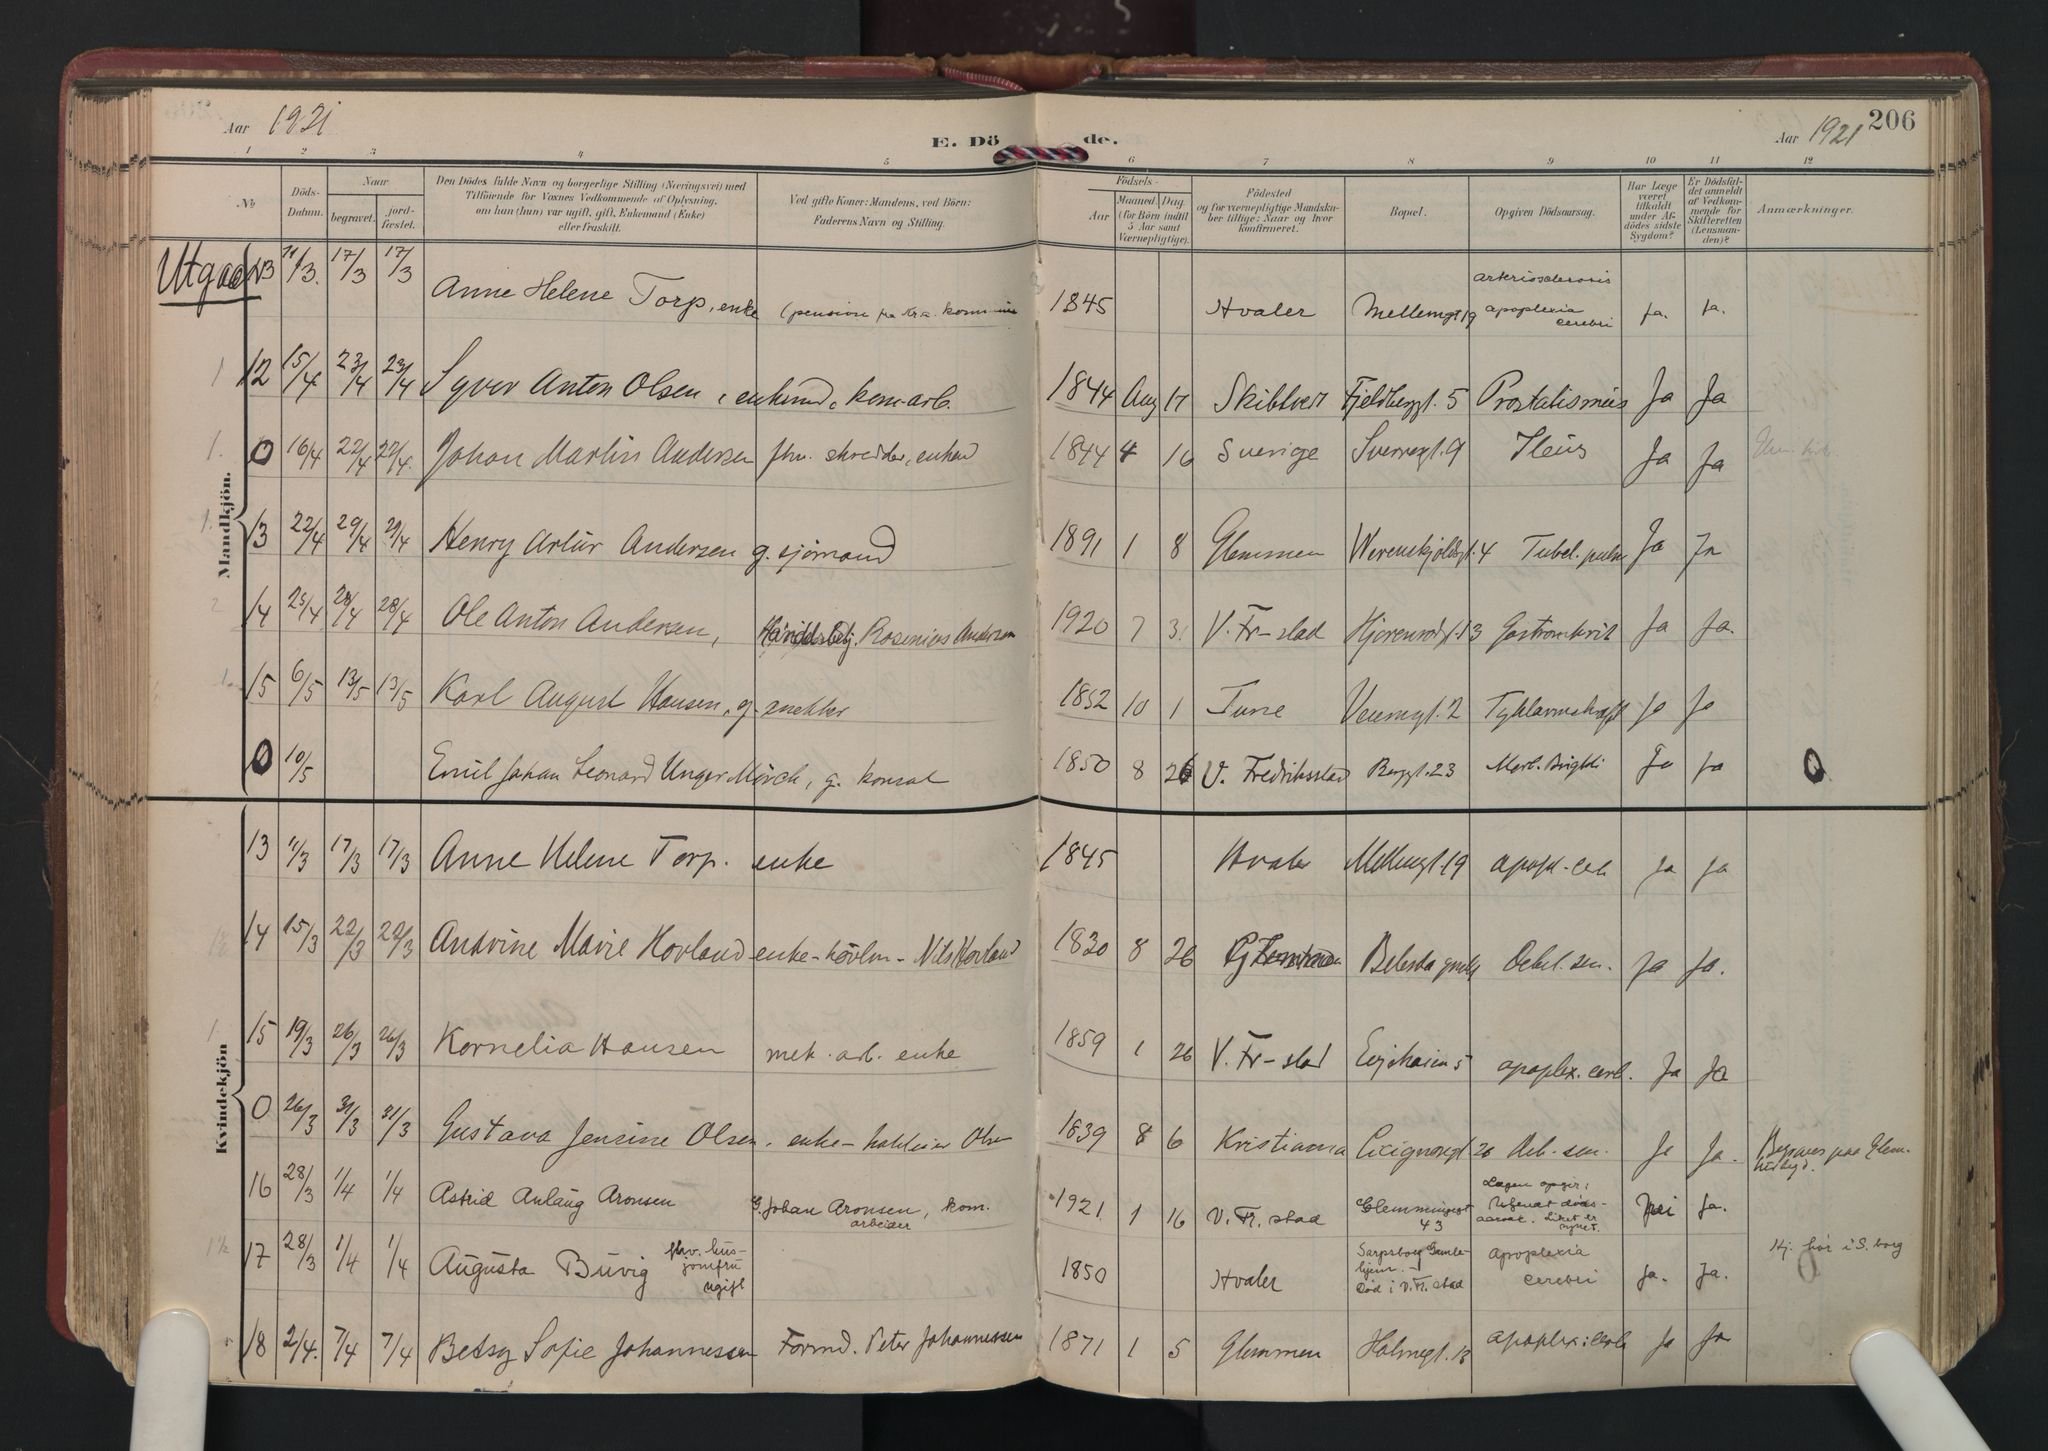 206
Aar 1921
E. Dö de.
Aar 1921
1 2 3 4 5 6 7 8 9 10 11 12
No
Döds-
Datum.
Naar
begravet.
jord-
fæstet.
Den Dödes fulde Navn og borgerlige Stilling (Næringsvei) med
Tilföiende for Voxnes Vedkommende af Oplysning,
om han (hun) var ugift, gift, Enkemand (Enke)
eller fraskilt.
Ved gifte Koner: Mandens, ved Börn:
Faderens Navn og Stilling.
Födsels-
Aar
Maaned. Dag.
(for Börn indtil
5 Aar samt
Værnepligtige).
Födested
og for værnepligtige Mandsku-
ber tillige: Naar og hvor
konfirmeret.
Bopæl.
Opgiven Dödsaarsag.
Har Læge
været
tilkaldt
under Af-
dödes sidste
Sygdom?
Er Dödsfal-
det anmeldt
af Vedkom-
mende for
Skifteretten
(Lensman-
den)?
Anmærkninger.
Mandkjön.
Utgaar 13 11/3. 17/3 17/3 Anne Helene Torp, enke (pension fra Kr.a. kommune 1845 Hvaler Mellemgt 19 arteriosclerosis apoplexia cerebri Ja. Ja.
1 12 15/4 23/4 23/4 Syver Anton Olsen, enkemd, kom-arb. 1844 Aug 17 Skibtvet Fjeldberggt. 5 Ja Ja
1. 0 16/4 22/4 22/4. Johan Martin Andersen fhv. skredder, 1844 4 16 Sverige Sverregt. 9 Ileus Ja Ja
1. 13 22/4 29/4 29/4 Henry Artur Andersen g. sjömand 1891 1 8 Glemmen Werenskjoldsgt. 4 Tubel. pulm Ja Ja
2 14 25/4 28/4 28/4 Ole Anton Andersen, Rosenius Andersen 1920 7 31 V. Fr-stad Ja Ja.
1. 15 6/5 13/5 13/5 Karl August Hansen, g. snekker 1852 10 1 Tune Veumgt. 2 Ja Ja
0 10/5 Emil Johan Leonard Unger Mörch, g. konsul 1850 8 26 V. Fredriksstad Berggt. 23 Morb. Brightii Ja Ja 0
Kvindekjön
13 11/3 17/3 17/3 Anne Helene Torp. enke 1845 Hvaler Mellemgt. 19 apopl. cer Ja Ja
14 15/3 22/3 22/3 Andrine Marie Hovland enke - hövlm - Nils Hovland 1830 8 26 Debil. sen. Ja Ja.
1. 15 19/3 26/3 26/3 Kornelia Hansen mek. arb. enke 1859 1 26 V. Fr-stad apoplex. cereb. Ja Ja
0 26/3 31/3 31/3 Gustava Jensine Olsen. enke - Olsen 1839 8 6 Kristiania Cicignongt 26 Deb. sen. Ja Ja. Begraves paa Glem.
16 28/3 1/4 1/4 Astrid Anlaug Aronsen G. Johan Aronsen, kom. arbeider 1921 1 16 V. Fr. stad Glemmengegt 43 Lægen opgir: Ukjendt döds- aarsak. Liket er synet. Nei Ja.
1½ 17 28/3 1/4 1/4 Augusta Buvig fhv. hus- jomfru ugift 1850 Hvaler Sarpsborg Gamle- hjem. - död i V. Fr. stad apoplexia cerebri Ja. Ja. Hj. hör i S. borg 0
18 2/4. 7/4 7/4 Betsy Sofie Johannessen Formd. Peter Johannessen 1871 1 5 Glemmen Holmegt. 13 apoplex: cereb Ja Ja